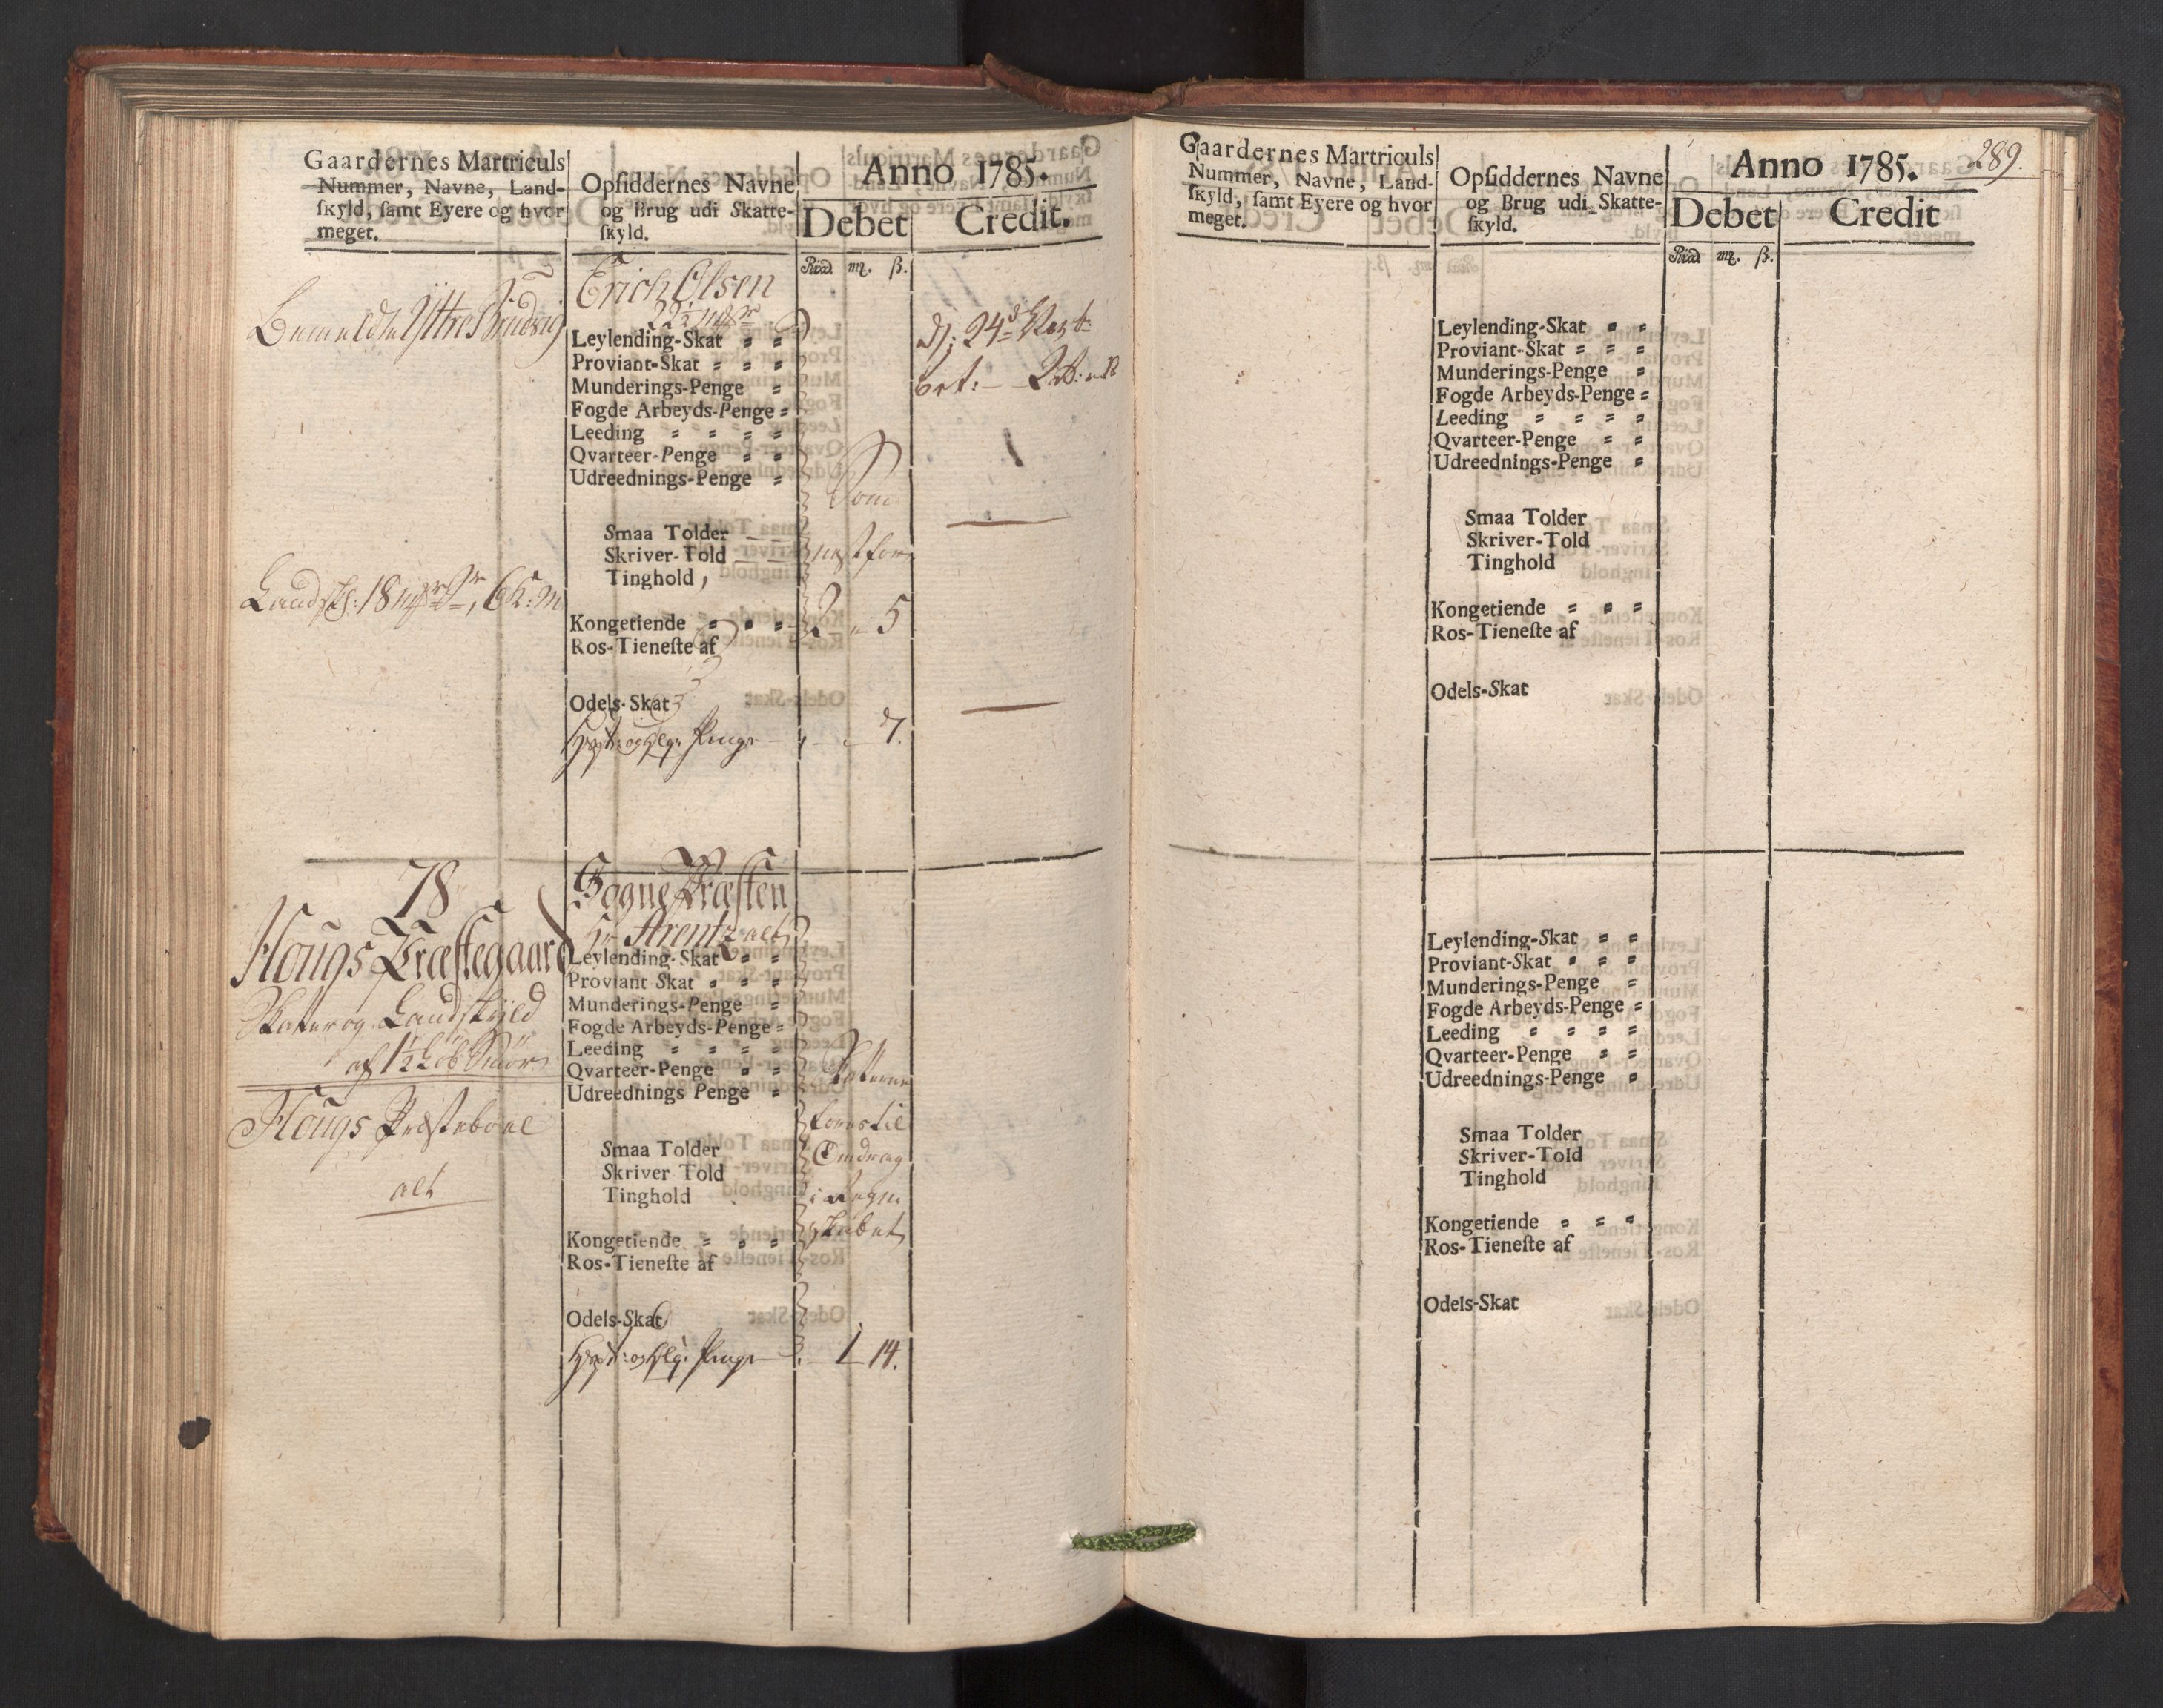 Gaardernes Martriculs
Nummer, Navne, Land-
ſkyld, ſamt Eyere og hvor
meget.
Opſiddernes Navne
og Brug udi Skatte-
ſkyld.
Anno 1785.
Debet
Credit.
Rixd. mȥ. ß.
Erich Olsen
Bemeldte Yttre
Leylending-Skat
Proviant-Skat
Munderings-Penge
Fogde Arbeyds-Penge
Leeding
Qvarteer-Penge
Udreednings-Penge
Som
Smaa Tolder
Skriver-Told
Tinghold,
næst for
Landsk: 18
Kongetiende
2 " 5
Ros-Tieneſte af
Odels-Skat
Penge 7.
78
Hougs Præstegaard
Skatter og Landskyld
af 1½ Løb Smør
Hougs Præsteboel
alt
Sogne Præsten
Hr Arentz alt
Leylending-Skat
Proviant Skat
Munderings-Penge
Fogde Arbeyds-Penge
Leeding
Qvarteer-Penge
Udreednings Penge
Skatterne
føres til
Smaa Tolder
Skriver Told
Tinghold
Inndrag
i Regn
skabet
Kongetiende
Ros-Tieneſte af
Odels-Skat
Penge 1 14.
289.
Gaardernes Martriculs
Nummer, Navne, Land-
ſkyld, ſamt Eyere og hvor
meget.
Opſiddernes Navne
og Brug udi Skatte-
ſkyld.
Anno 1785.
Debet
Credit
Rixd. mȥ. ß.
Leylending-Skat
Proviant-Skat
Munderings-Penge
Fogde Arbeyds-Penge
Leeding
Qvarteer-Penge
Udreednings-Penge
Smaa Tolder
Skriver-Told
Tinghold
Kongetiende
Ros-Tieneſte af
Odels-Skat
Leylending-Skat
Proviant-Skat
Munderings-Penge
Fogde Arbeyds-Penge
Leeding
Qvarteer-Penge
Udreednings-Penge
Smaa Tolder
Skriver-Told
Tinghold
Kongetiende
Ros-Tieneſte af
Odels-Skat